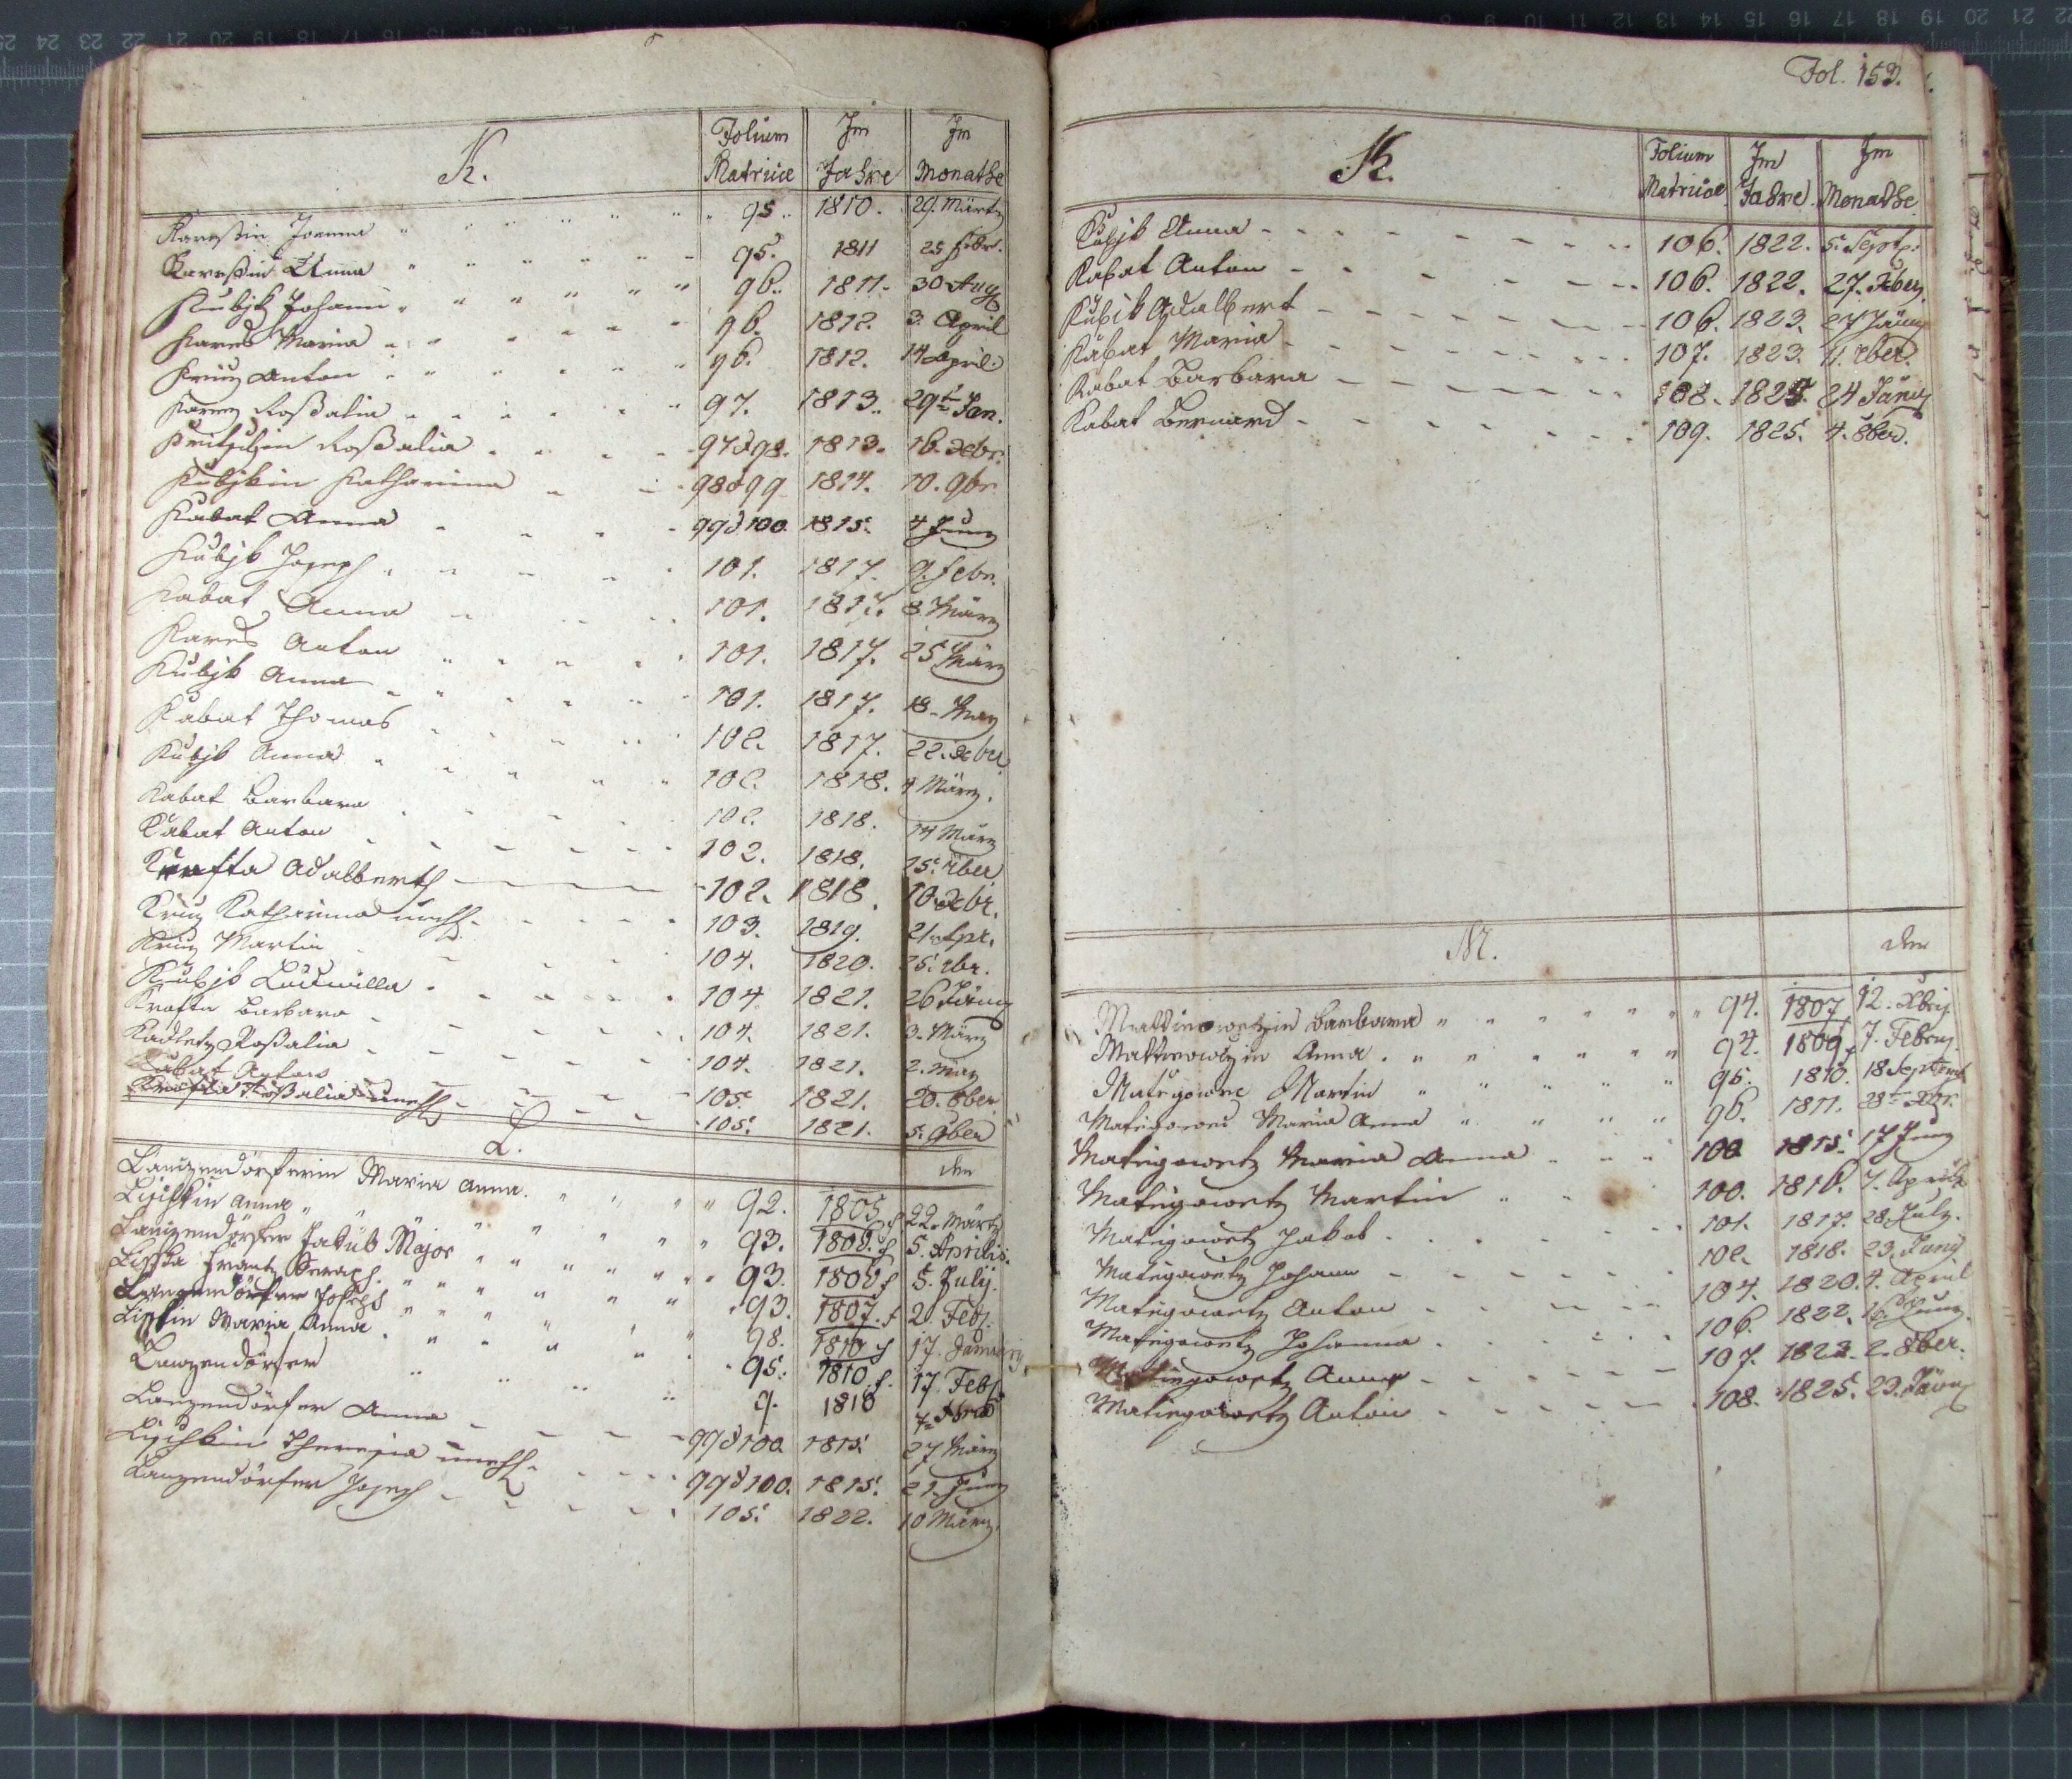 K.
Folium Matricae
Im Jahre
Im Monathe
Karessin Joanna 95. 1810. 29. Märtz
Karessin Anna 95. 1811 25 Febr.
Kubjk Johann 96. 1811. 30 Aug
Kares Maria 96. 1812. 3. April
Anton 96. 1812. 14 April.
Rosßalia 97. 1813. 29t Jan.
Roßalia 97 98. 1813. 16. xbr.
Kubjkin Katharina 98 99 1814. 10. 9br
Kabat Anna 99 100. 1815. 4 Juny
Kubjk Joseph 101. 1817. 9. Febr.
Kabat Anna 101. 1817. 8. März
Kares Anton 101. 1817. 25 März
Kubjk Anna 101. 1817. 18. May
Kabat Thomas 102. 1817. 22. xbr
Kubjk Anna 102. 1818. 4 März.
Kabat Barbara 102. 1818. 14 März
Kabat Anton 102. 1818.
Krafta Adalberth 102. 1818. 10. xbr.
Katharina unehl. 103. 1819. 21 Apr.
Martin 104. 1820.
Kubjk Ludmilla 104. 1821. 26 Jäny
Krafta Barbara 104. 1821. 3. März
Kadletz Roßalia 104. 1821. 2. May
Kabat Anton 105. 1821. 20. 8ber
Krafta Roßalia unehl. 105. 1821. 5. 9ber
L.
den
Lanzendörferin Maria Anna. 92. 1805 22. Märtz
Lischkin Anna 93. 1806. 5. Aprilis.
Lanzendörfer Jakub Major 93. 1806 5. July.
Lischka Frantz Seraph. 93. 1807. 2. Feb.
Lanzendörfer Joseph 98. 1810 17. January
Maria Anna. 95. 1810. 17. Feb
Lanzendörfer 9. 1810
Lanzendörfer Anna 99 100. 1815. 27 März
Lischkin Theresia unehl. 99 100. 1815. 21. Juny
Lanzendörfer Joseph 105. 1822. 10 März.
Fol. 153.
K.
Folium Matricae
Im Jahre
Im Monathe
Kubjk Anna 106. 1822. 5. Sept.
Kabat Anton 106. 1822. 27. Xber.
Kubik Adalbert 106. 1823. 27 Jäny
Kabat Maria 107. 1823. 11.
Kabat Barbara 108. 1825. 24 Jäny
Kabat Bernard 109. 1825. 4. 8ber.
M.
den
Barbara 94. 1807 12. Xbris
Anna 94. 1809 7. Febr
Martin 95. 1810. 18 Septemb
Maria Anna 96. 1811. 28t Xbr.
Matiegowetz Maria Anna 100 1815. 17 Juny
Matiegowetz Martin 100. 1816. 7. April
Matiegowetz Jakob 101. 1817. 28. July.
Matiegowetz Johann 102. 1818. 23. Juny
Matiegowetz Anton 104. 1820. 4. April
Matiegowetz Johanna 106. 1822. 16. Juny.
Matiegowetz Anna 107. 1823. 2. 8ber.
Matiegowetz Anton 108. 1825. 23. Jäny